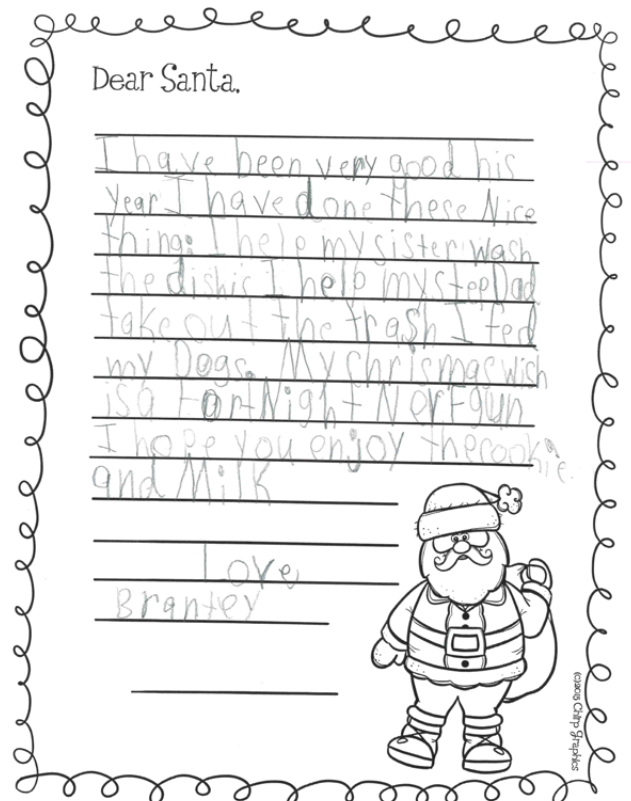 Dear Santa,
I have been very good his
year I have done these Nice
thing: I help my sister wash
the dishis I help my steep Dad
take out the trash I fed
my Dogs. My chrismas wish
is a Fort Night Nerf gun
I hope you enjoy the cookie.
and Milk
Love
Brantey
(c)2015 Chirp Graphics